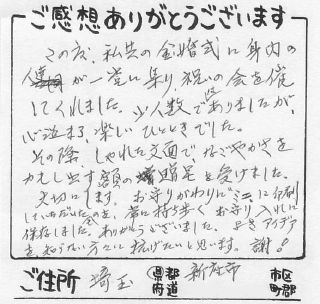 ご感想ありがとうございます
この度、私共の金婚式に身内の
が一堂に集り、祝いの会を催
してくれました。少人数でありましたが、
心温まる、楽しいひとときでした。
その際、しゃれた文面で、なごやかさを
かもし出す額の贈呈を受けました。
大切にします。お守りがわりに"ミニ"に印刷
していただいたのを、常に持ち歩くお守り入れに
保存しました。ありがとうございました。よきアイデア
を知りたい方々に拡げたいと思います。謝!
ご住所 埼玉 都道府県 新座市 市区町郡